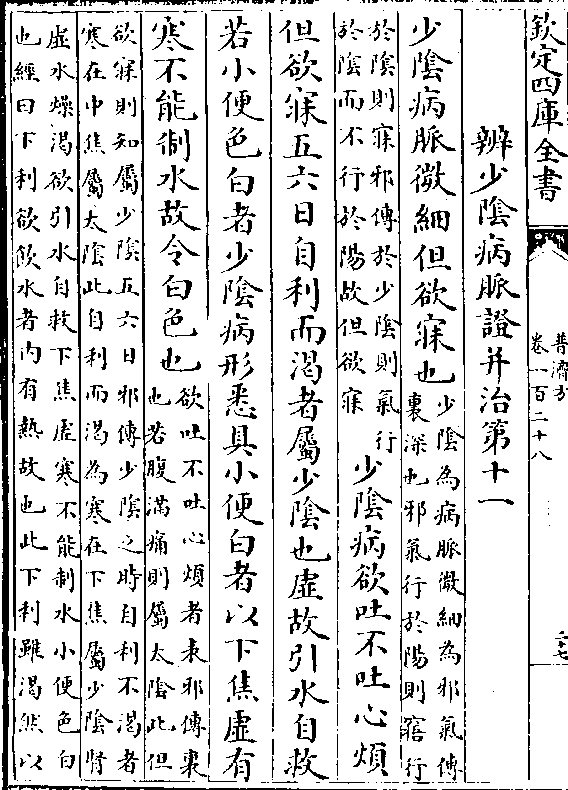 欽定四庫全書
普濟方
卷一百二十八
辨少陰病脈證并治第十一
少陰病脈微細但欲寐也少陰為病脈微細為邪氣傳
裏深也邪氣行於陽則寤行
於陰則寐邪傳於少陰則氣行
於陰而不行於陽故但欲寐
少陰病欲吐不吐心煩
但欲寐五六日自利而渴者屬少陰也虛故引水自救
若小便色白者少陰病形悉具小便白者以下焦虛有
寒不能制水故令白色也欲吐不吐心煩者表邪傳裏
也若腹滿痛則屬太陰此但
欲寐則知屬少陰五六日邪傳少陰之時自利不渴者
寒在中焦屬太陰此自利而渴為寒在下焦屬少陰腎
虛水燥渴欲引水自救下焦虛寒不能制水小便色白
也經曰下利欲飲水者內有熱故也此下利雖渴然以